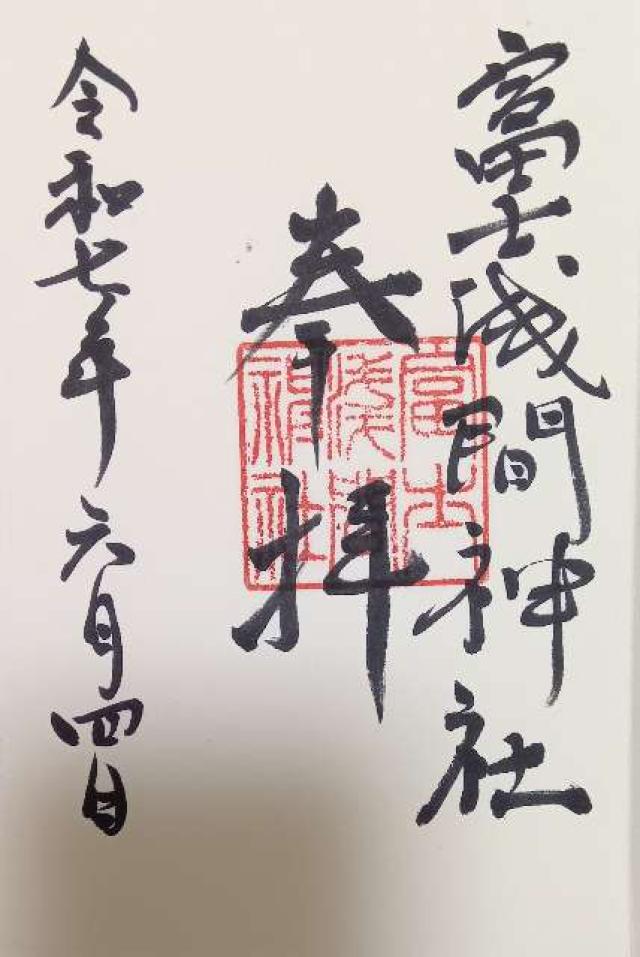 富士浅間神社
奉拝
富士
浅間
神社
令和七年六月四日